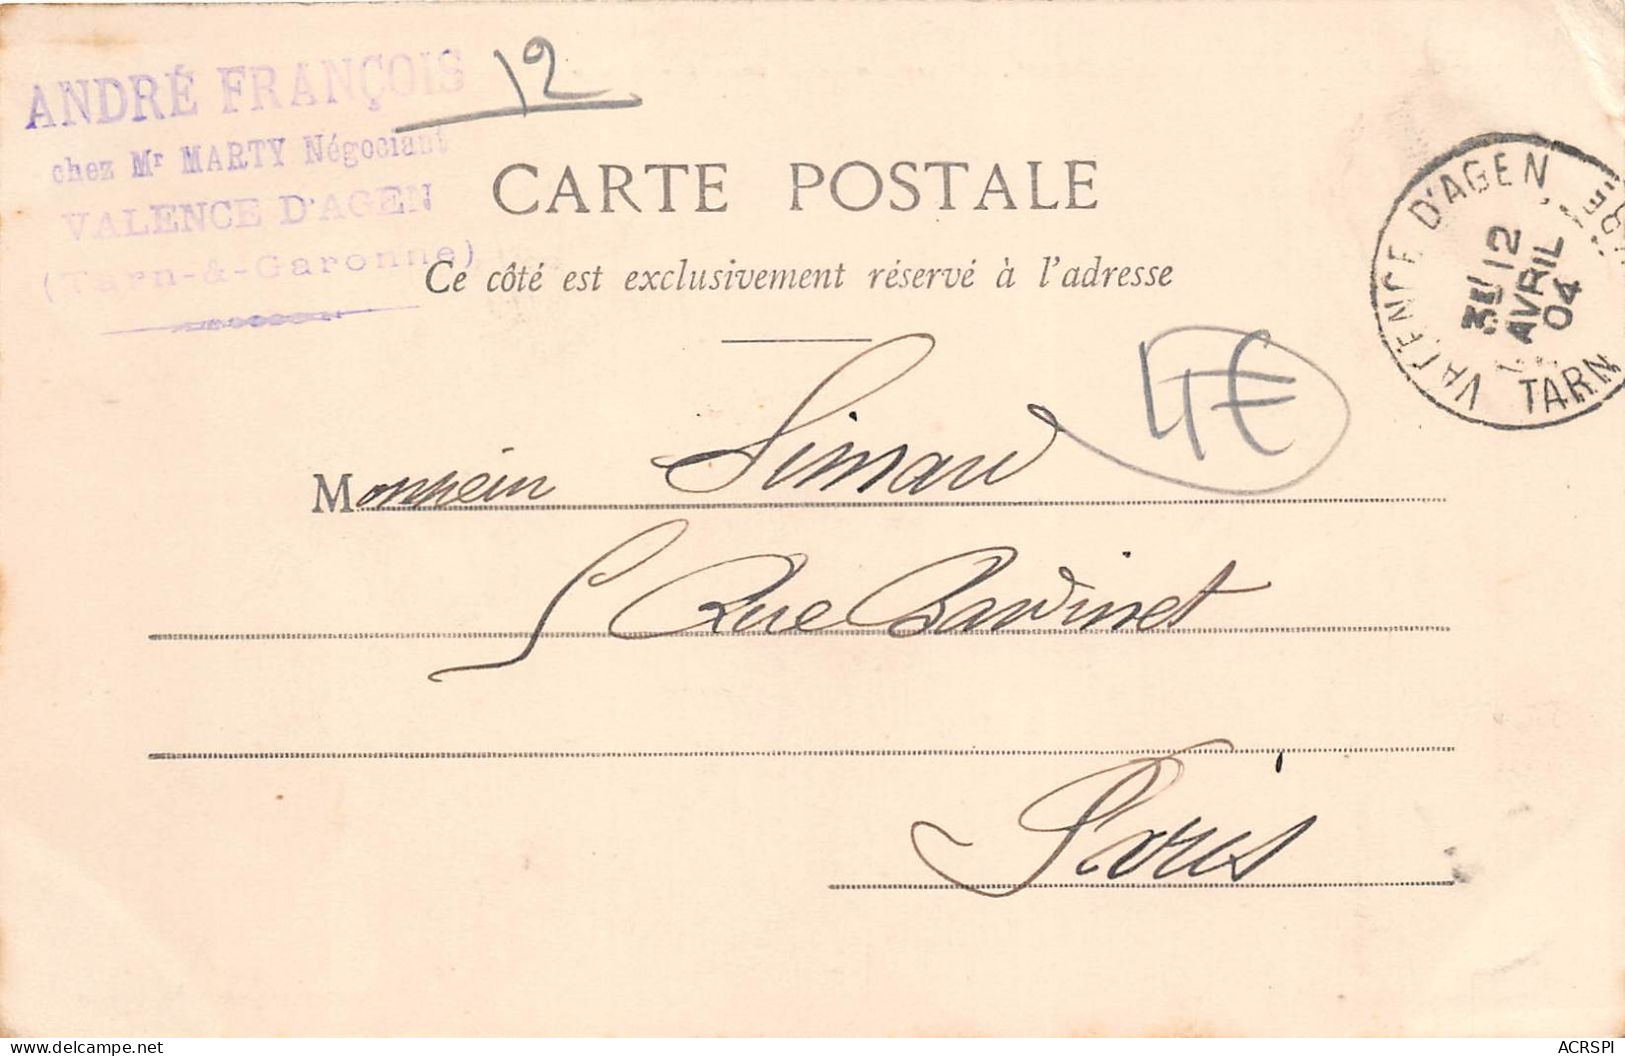 ANDRÉ FRANÇOIS
chez Mr MARTY Négociant
VALENCE D'AGEN
(Tarn-&-Garonne)
12
CARTE POSTALE
Ce côté est exclusivement réservé à l'adresse
VALENCE D'AGEN
3E 12
AVRIL
04
TARN
4€
Monsieur Simau
5 Rue Bawinet
Paris
delcampe.net
ACRSPI